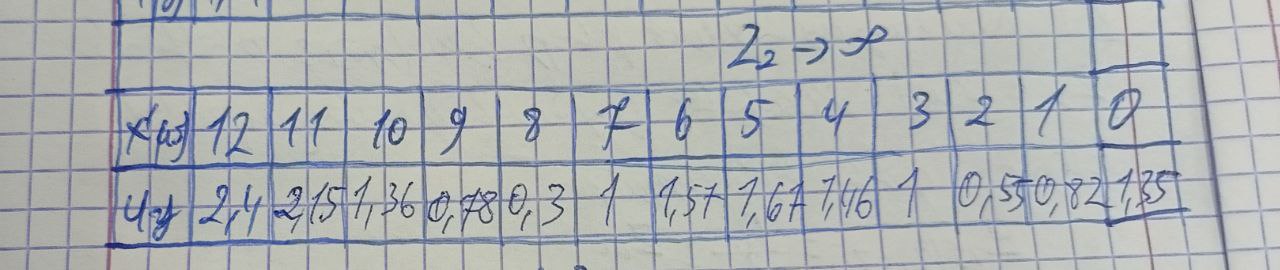 Z₂ → ∞
12 11 10 9 8 7 6 5 4 3 2 1 0
2,4 2,15 1,36 0,78 0,3 1 1,57 1,67 1,46 1 0,55 0,82 1,35